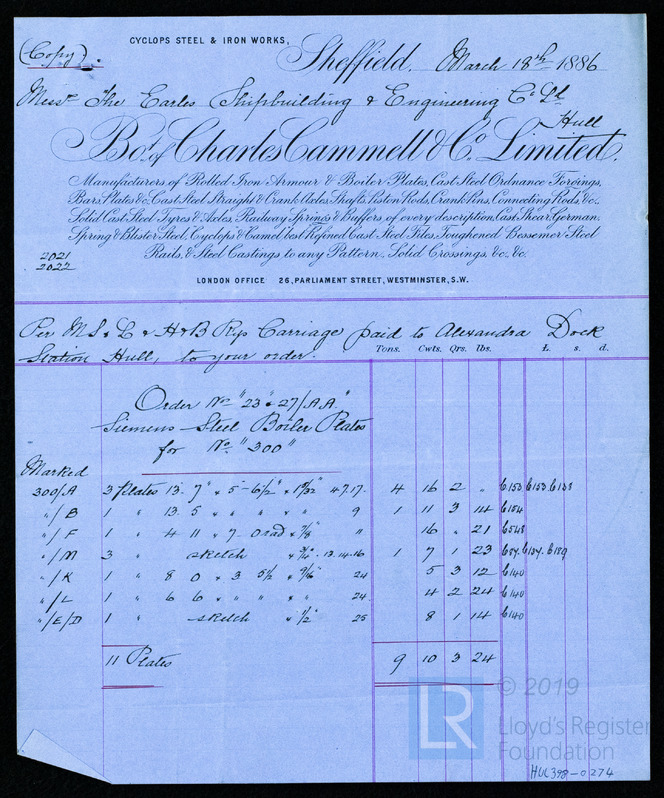 (Copy).
CYCLOPS STEEL & IRON WORKS,
Sheffield, March 18th 1886
Messrs The Earles Shipbuilding & Engineering Co Ld
Hull
Bot. of Charles Cammell & Co. Limited.
Manufacturers of Rolled Iron Armour & Boiler Plates, Cast Steel Ordnance Forgings,
Bars, Plates &c, Cast Steel Straight & Crank Axles, Shafts, Piston Rods, Crank Pins, Connecting Rods, &c.,
Solid Cast Steel Tyres & Axles, Railway Springs & Buffers of every description, Cast, Shear, German,
Spring & Blister Steel, Cyclops & Camel, best Refined Cast Steel Files, Toughened Bessemer Steel
Rails, & Steel Castings to any Pattern, Solid Crossings, &c. &c.
2021
2022
LONDON OFFICE 26, PARLIAMENT STREET, WESTMINSTER, S.W.
Per M S & L & H & B Rys Carriage paid to Alexandra Dock
Station Hull, to your order.
Tons. Cwts. Qrs. lbs. £. s. d.
Order No "23 & 27/AA"
Siemens Steel Boiler Plates
for No "300"
Marked
300/A 3 Plates 13. 7 " × 5 - 6 1/2 " × 19/32 " 47.17. 4 16 2 " 6153 6153 6138
"/B 1 " 13. 5 " " " " 9 1 11 3 14 6154
"/F 1 " 4 11 × 7 - 0 rad × 7/8 " " 16 " 21 6548
"/M 3 " sketch × 3/4 " 13.14.16 1 7 1 23 6154. 6159
"/K 1 " 8 0 × 3 5 1/2 × 9/16 " 24 5 3 12 6140
"/L 1 " 6 6 " " " " 24 4 2 24 6140
"/E/D 1 " sketch × 1/2 " 25 8 1 14 6140
11 Plates 9 10 3 24
LR
© 2019
Lloyd's Register
Foundation
HUL398-0274